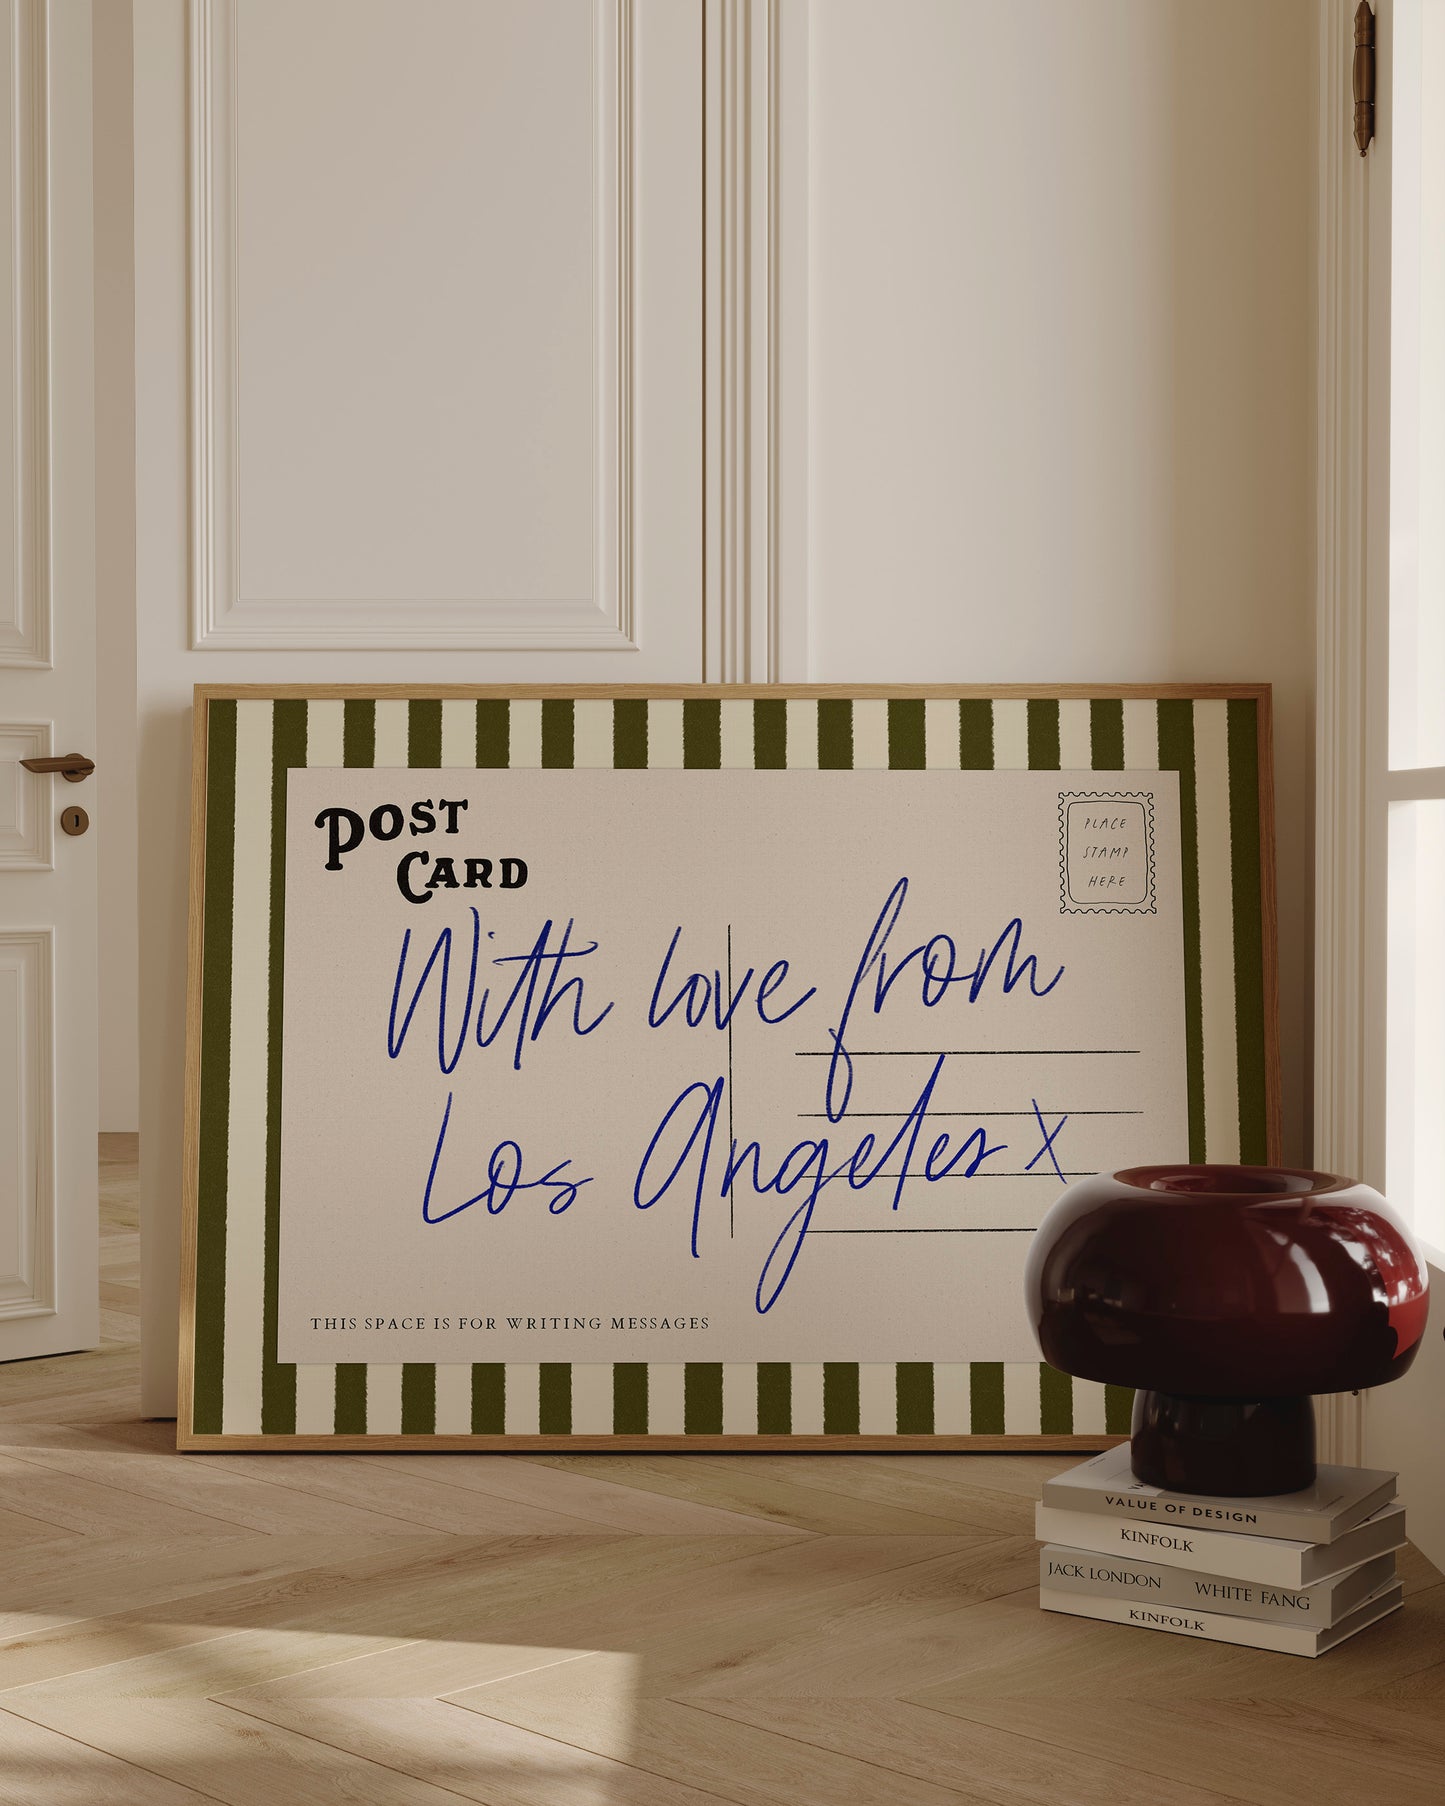 POST
CARD
PLACE
STAMP
HERE
With love from
Los Angeles x
THIS SPACE IS FOR WRITING MESSAGES
VALUE OF DESIGN
KINFOLK
JACK LONDON WHITE FANG
KINFOLK